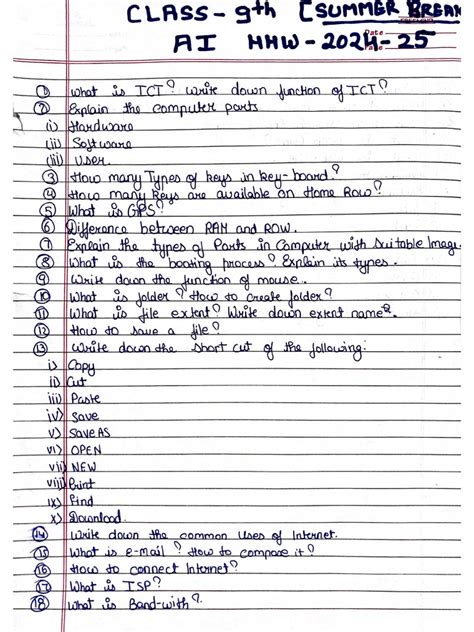 CLASS - 9th [SUMMER BREAK
AI HHW - 2024-25
Date
① What is ICT? Write down function of ICT?
② Explain the computer parts
(i) Hardware
(ii) Software
(iii) User.
③ How many Types of keys in key-board?
④ How many keys are available on Home Row?
⑤ What is GPS?
⑥ Difference between RAM and ROW.
⑦ Explain the types of Parts in Computer with Suitable Image
⑧ What is the booting process? Explain its types.
⑨ Write down the function of mouse.
⑩ What is folder? How to create folder?
⑪ What is file extent? Write down extent name?
⑫ How to save a file?
⑬ Write down the short cut of the following:
i) Copy
ii) Cut
iii) Paste
iv) Save
v) Save AS
vi) OPEN
vii) NEW
viii) Print
ix) Find
x) Download.
⑭ Write down the common Uses of Internet.
⑮ What is e-mail? How to compare it?
⑯ How to connect Internet?
⑰ What is ISP?
⑱ What is Band-with?